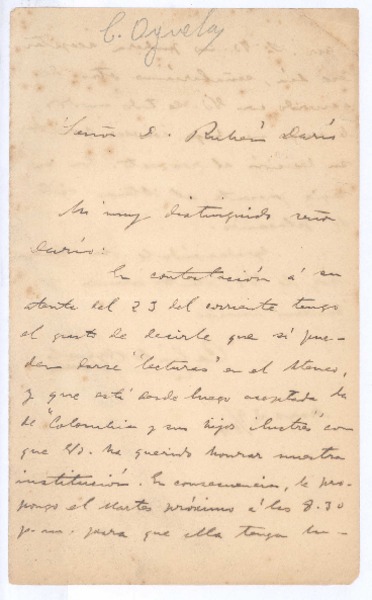 C. Oyuela
Señor D. Rubén Darío
Mi muy distinguido señor
Darío:
En contestación á su
atenta del 23 del corriente tengo
el gusto de decirle que sí pue-
den darse "lecturas" en el Ateneo,
y que está desde luego aceptada la
de "Colombia y sus hijos ilustres" con
que Vd. ha querido honrar nuestra
institución. En consecuencia, le pro-
pongo el Martes próximo á las 8.30
p.m. para que ella tenga lu-